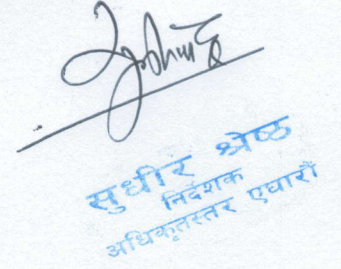 सुधीर श्रेष्ठ
निर्देशक
अधिकृतस्तर एघारौं